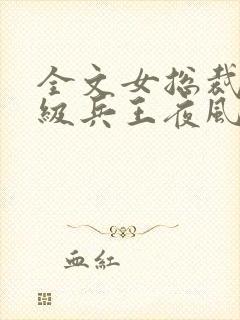 全文女总裁
级兵王夜风
血红